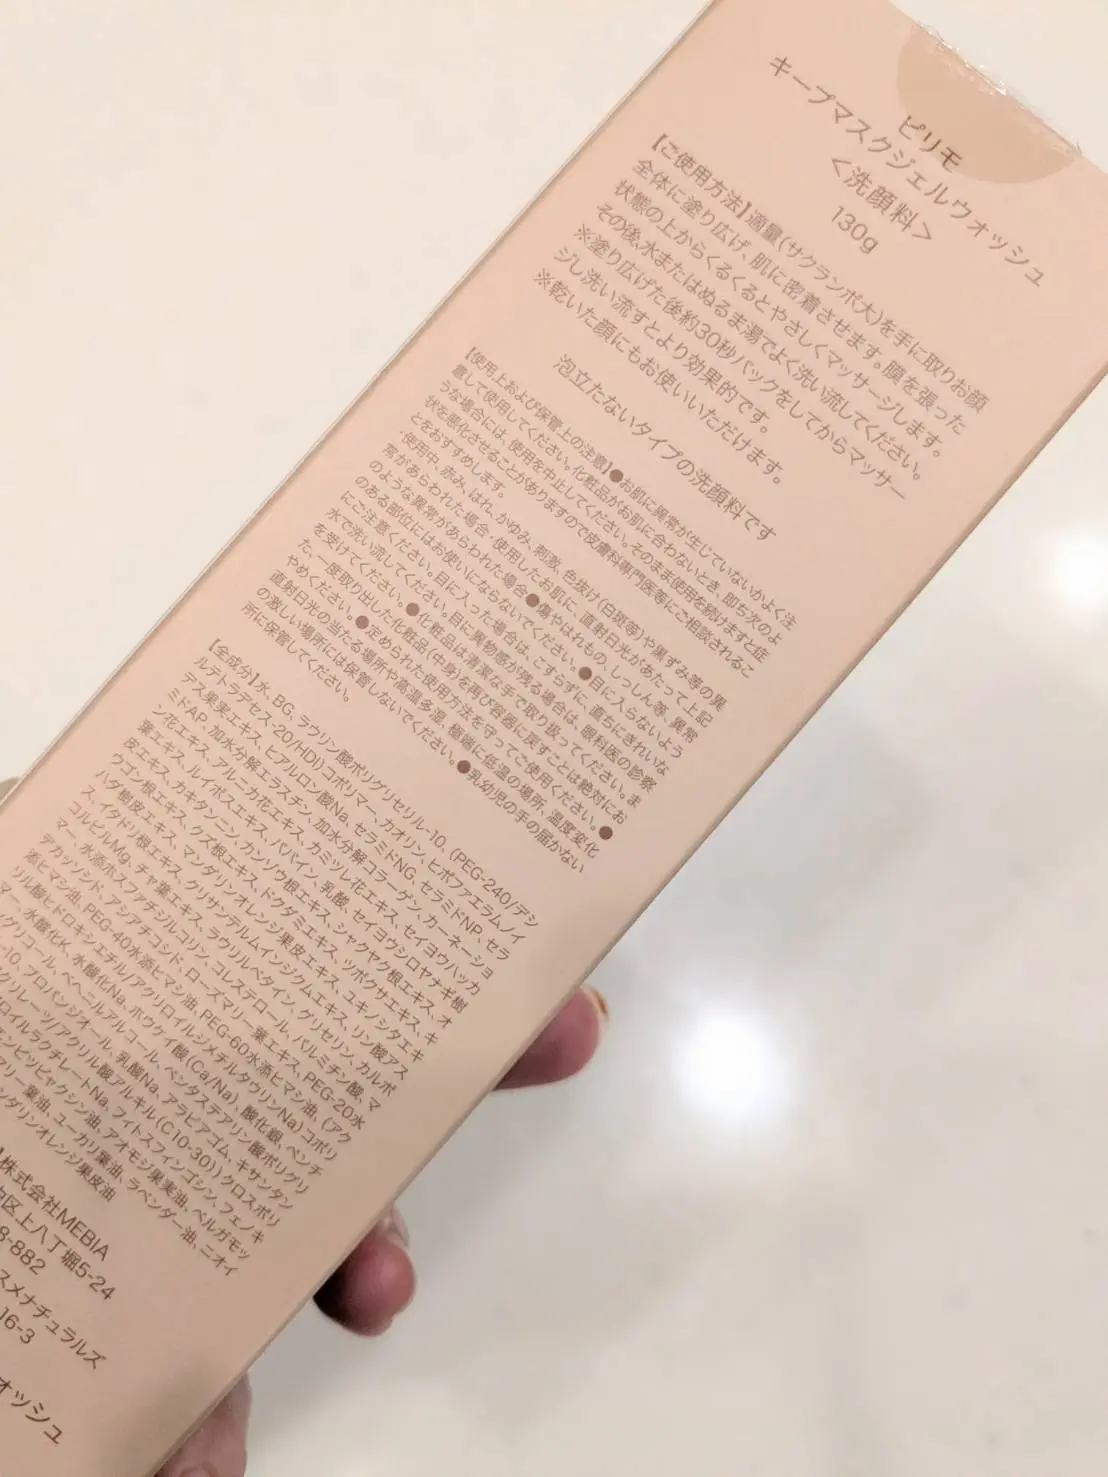 ピリモ
キープマスクジェルウォッシュ
<洗顔料>
130g
【ご使用方法】適量(サクランボ大)を手に取りお顔
全体に塗り広げ、肌に密着させます。膜を張った
状態の上からくるくるとやさしくマッサージします。
その後、水またはぬるま湯でよく洗い流してください。
※塗り広げた後約30秒パックをしてからマッサー
ジし洗い流すとより効果的です。
※乾いた顔にもお使いいただけます。
泡立たないタイプの洗顔料です
【使用上および保管上の注意】●お肌に異常が生じていないかよく注
意して使用してください。化粧品がお肌に合わないとき、即ち次のよ
うな場合には、使用を中止してください。そのまま使用を続けますと症
状を悪化させることがありますので皮膚科専門医等にご相談されるこ
とをおすすめします。
・使用中、赤み、はれ、かゆみ、刺激、色抜け(白斑等)や黒ずみ等の異
常があらわれた場合・使用したお肌に、直射日光があたって上記
のような異常があらわれた場合●傷やはれもの、しっしん等、異常
のある部位にはお使いにならないでください。●目に入らないよう
にご注意ください。目に入った場合は、こすらずに、直ちにきれいな
水で洗い流してください。目に異物感が残る場合は、眼科医の診察
を受けてください。●化粧品は清潔な手で取り扱ってください。ま
た、一度取り出した化粧品(中身)を再び容器に戻すことは絶対にお
やめください。●定められた使用方法を守ってご使用ください。●
直射日光の当たる場所や高温多湿、極端に低温の場所、温度変化
の激しい場所には保管しないでください。●乳幼児の手の届かない
所に保管してください。
【全成分】水、BG、ラウリン酸ポリグリセリル-10、(PEG-240/デシ
ルテトラデセス-20/HDI)コポリマー、カオリン、ヒポファエラムノイ
デス果実エキス、ヒアルロン酸Na、セラミドNG、セラミドNP、セラ
ミドAP、加水分解エラスチン、加水分解コラーゲン、カーネーショ
ン花エキス、アルニカ花エキス、カミツレ花エキス、セイヨウハッカ
葉エキス、ルイボスエキス、パパイン、乳酸、セイヨウシロヤナギ樹
皮エキス、カキタンニン、カンゾウ根エキス、シャクヤク根エキス、オ
ウゴン根エキス、クズ根エキス、ドクダミエキス、ツボクサエキス、キ
ハダ樹皮エキス、マンダリンオレンジ果皮エキス、ユキノシタエキ
ス、イタドリ根エキス、クリサンテルムインジクムエキス、リン酸アス
コルビルMg、チャ葉エキス、ラウリルベタイン、グリセリン、カルボ
マー、水添ホスファチジルコリン、コレステロール、パルミチン酸、マ
デカッソシド、アシアチコシド、ローズマリー葉エキス、PEG-20水
添ヒマシ油、PEG-40水添ヒマシ油、PEG-60水添ヒマシ油、(アク
リル酸ヒドロキシエチル/アクリロイルジメチルタウリンNa)コポリ
マー、水酸化K、水酸化Na、ホウケイ酸(Ca/Na)、酸化銀、ペンチ
グリコール、ベヘニルアルコール、ペンタステアリン酸ポリグリ
-10、プロパンジオール、乳酸Na、アラビアゴム、キサンタン
クリレーツ/アクリル酸アルキル(C10-30))クロスポリ
ロイルラクチレートNa、フィトスフィンゴシン、フェノキ
エンピツビャクシン油、アオモジ果実油、ベルガモッ
マリー葉油、ユーカリ葉油、ラベンダー油、ニオイ
ンダリンオレンジ果皮油
株式会社MEBIA
区上八丁堀5-24
8-882
スメナチュラルズ
16-3
ォッシュ